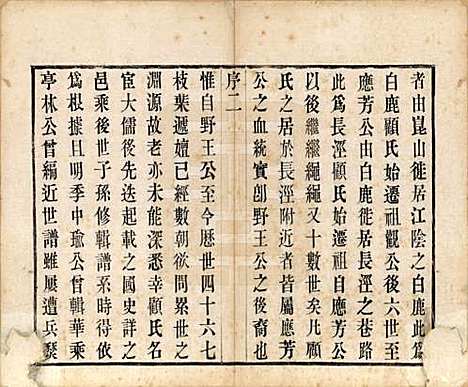 者由崑山徙居江陰之白鹿此爲
白鹿顧氏始遷祖觀公後六世至
應芳公由白鹿徙居長涇之巷路
此爲長涇顧氏始遷祖自應芳公
以後繼繼繩繩又十數世矣凡顧
氏之居於長涇附近者皆屬應芳
公之血統實創野王公之後裔也
序二
惟自野王公至今歷世四十六七
枝葉遞嬗已經數朝欲問累世之
淵源故老亦未能深悉幸顧氏名
宦大儒後先迭起載之國史詳之
邑乘後世子孫修輯譜系時得依
爲根據且明季中瑜公曾輯華乘
亭林公曾編近世譜雖屢遭兵燹